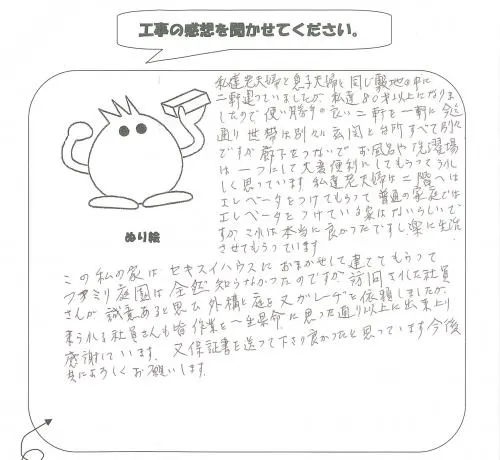 工事の感想を聞かせてください。
私達老夫婦と息子夫婦と同じ敷地の中に
二軒建っていましたが、私達80才以上になりま
したので使い勝手の良い二軒を一軒に今迄
通り世帯は別々に玄関と台所すべて別々
ですが廊下をつないで お風呂や洗濯場
は一つにして大変便利にしてもらってうれ
しく思っています 私達老夫婦は二階へは
エレベータをつけてもらって 普通の家庭では
エレベータをつけている家はないらしいで
すが、これは本当に良かったですし楽に生活
させてもらっています
ぬり絵
この私の家は セキスイハウスにおまかせして建ててもらって
ファミリ庭園は全然知らなかったのですが、訪問された社員
さんが 誠意あると思い 外構と庭を又ガレーヂと依頼しましたが、
来られる社員さんも皆作業を一生県命に思った通り以上に出来上り
感謝しています。又保証書を送って下さり良かったと思っています今後
共によろしくお願いします。